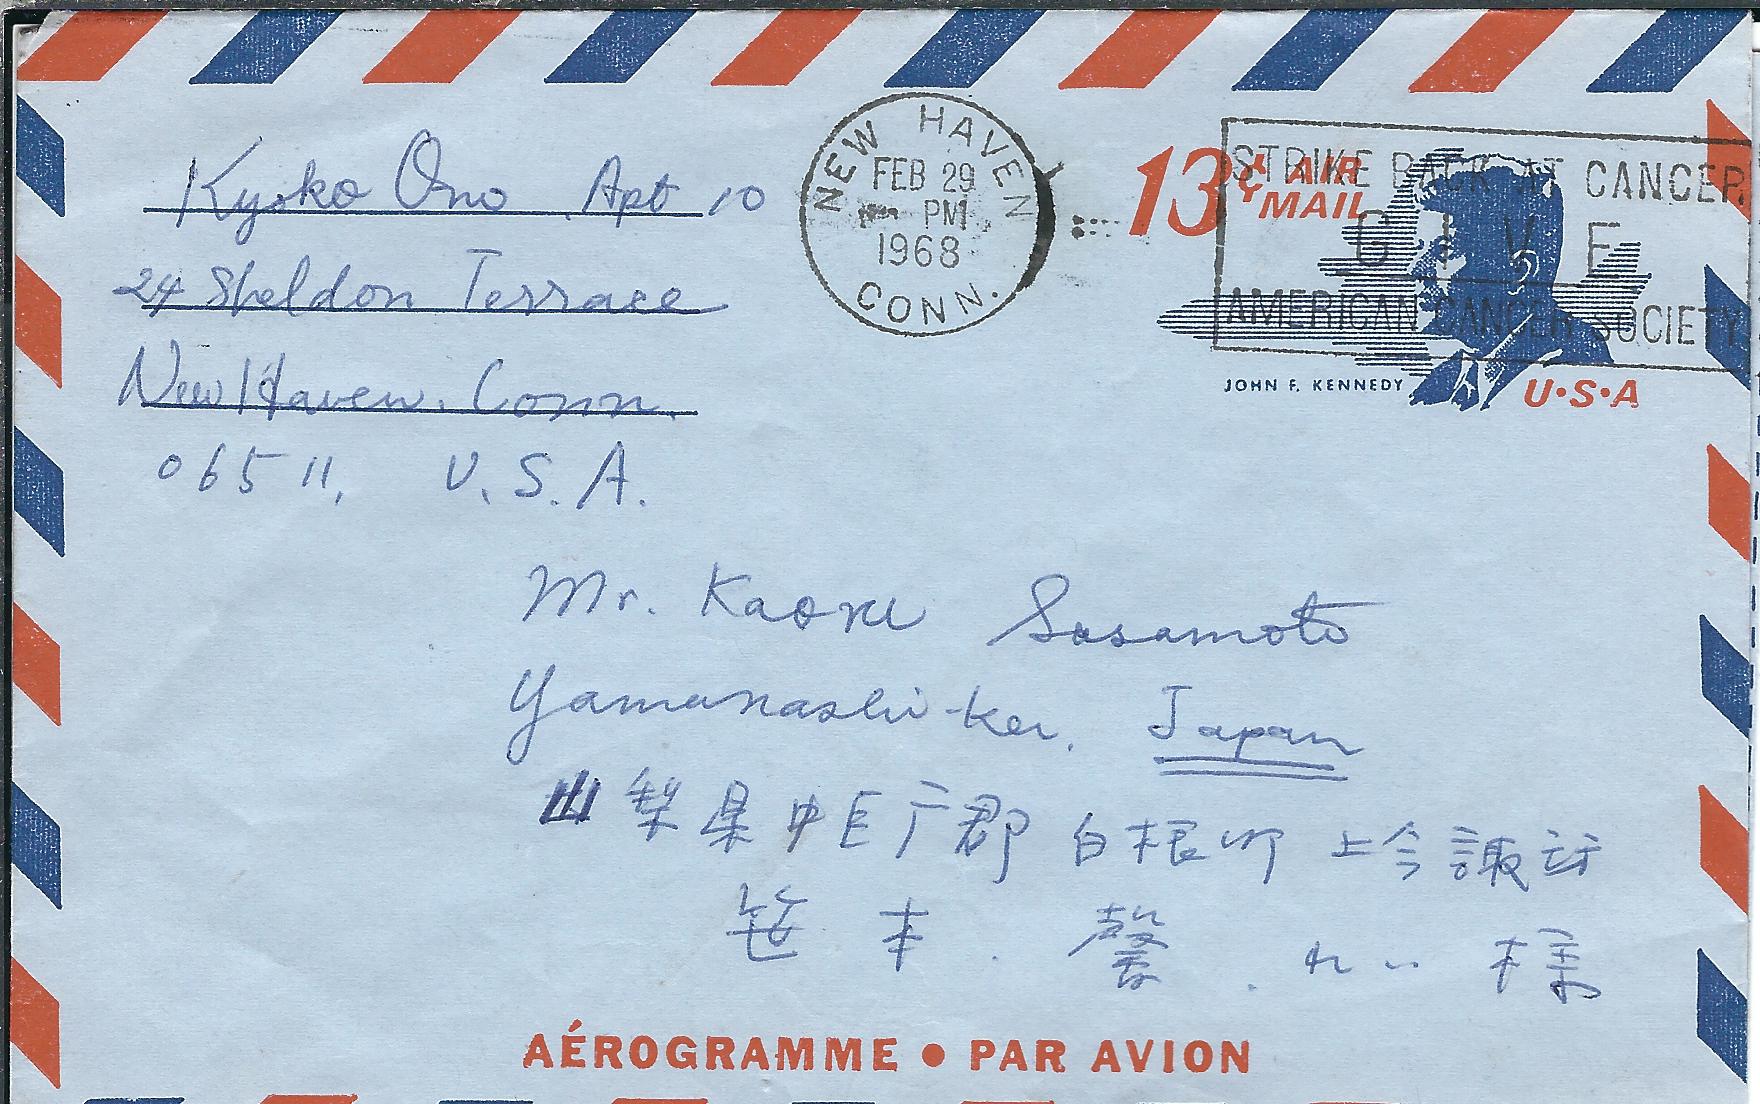 Kyoko Ono Apt 10
24 Sheldon Terrace
New Haven, Conn.
06511, U.S.A.
NEW HAVEN
FEB 29
PM
1968
CONN.
13¢ AIR MAIL
STRIKE BACK AT CANCER
GIVE
AMERICAN CANCER SOCIETY
JOHN F. KENNEDY
U·S·A
Mr. Kaoru Sasamoto
Yamanashi-ken, Japan
山梨県中巨广郡 白根町 上今諏訪
笹本 馨 様
AÉROGRAMME • PAR AVION